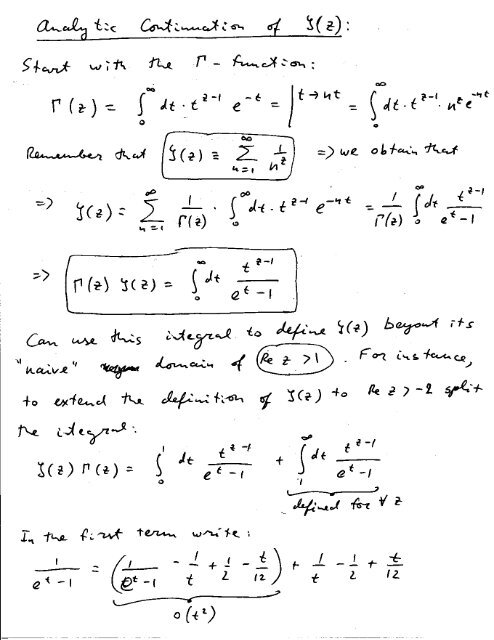 Analytic Continuation of ζ(z):
Start with the Γ - function:
Γ(z) = ∫₀^∞ dt · t^{z-1} e^{-t} = | t → nt = ∫₀^∞ dt · t^{z-1} · n^z e^{-nt}
Remember that ζ(z) ≡ ∑_{n=1}^∞ 1/n^z => we obtain that
=> ζ(z) = ∑_{n=1}^∞ 1/Γ(z) · ∫₀^∞ dt · t^{z-1} e^{-nt} = 1/Γ(z) ∫₀^∞ dt t^{z-1}/(e^t - 1)
=> Γ(z) ζ(z) = ∫₀^∞ dt t^{z-1}/(e^t - 1)
Can use this integral to define ζ(z) beyond its
"naive" domain of Re z > 1. For instance,
to extend the definition of ζ(z) to Re z > -2 split
the integral:
ζ(z) Γ(z) = ∫₀^1 dt t^{z-1}/(e^t - 1) + ∫₁^∞ dt t^{z-1}/(e^t - 1)
defined for ∀ z
In the first term write:
1/(e^t - 1) = (1/(e^t - 1) - 1/t + 1/2 - t/12) + 1/t - 1/2 + t/12
o(t²)